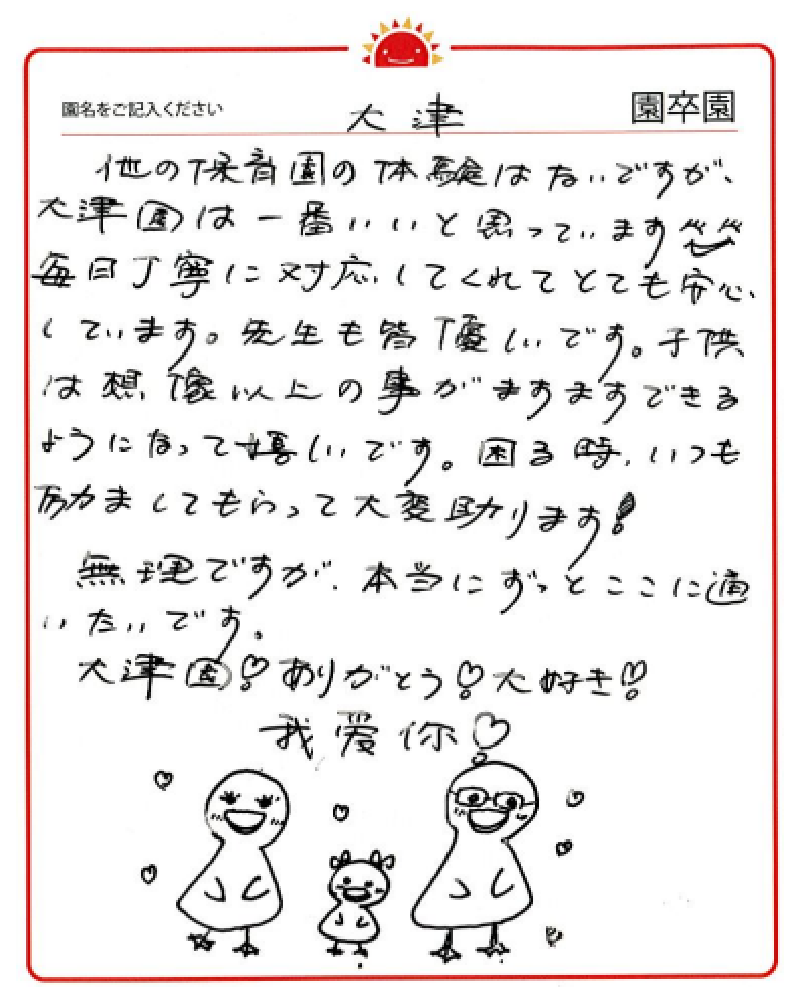 園名をご記入ください 大津 園卒園
他の保育園の体験はないですが、
大津園は一番いいと思っています
毎日丁寧に対応してくれてとても安心
しています。先生も皆優しいです。子供
は想像以上の事がますますできる
ようになって嬉しいです。困る時、いつも
励ましてもらって大変助ります!
無理ですが、本当にずっとここに通
いたいです。
大津園♡ありがとう♡大好き♡
我爱你♡